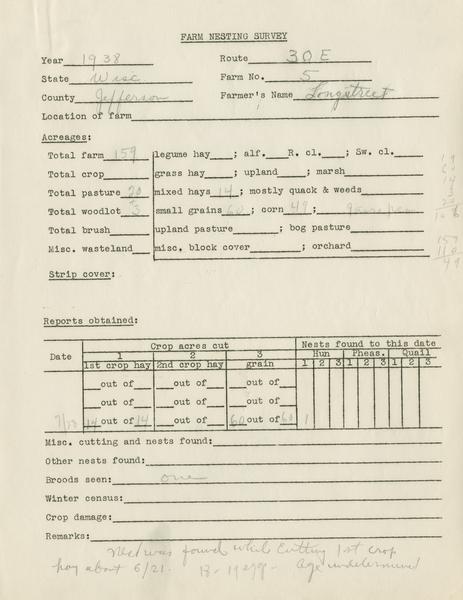 FARM NESTING SURVEY
Year 1938 Route 30 E
State Wisc Farm No. 5
County Jefferson Farmer's Name Longstreet
Location of farm
Acreages:
Total farm 159 legume hay ; alf. R. cl. ; Sw. cl.
Total crop grass hay ; upland ; marsh
Total pasture 20 mixed hays 14 ; mostly quack & weeds
Total woodlot 3 small grains 60 ; corn 49 ;
Total brush upland pasture ; bog pasture
Misc. wasteland misc. block cover ; orchard
Strip cover:
Reports obtained:
Crop acres cut Nests found to this date
Date 1 2 3 Hun Pheas. Quail
1st crop hay 2nd crop hay grain 1 2 3 1 2 3 1 2 3
out of out of out of
out of out of out of
14 out of 14 out of 60 out of 60 1
Misc. cutting and nests found:
Other nests found:
Broods seen: one
Winter census:
Crop damage:
Remarks:
Nest was found while Cutting 1st crop
hay about 6/21. 18-19 eggs - Age undetermined